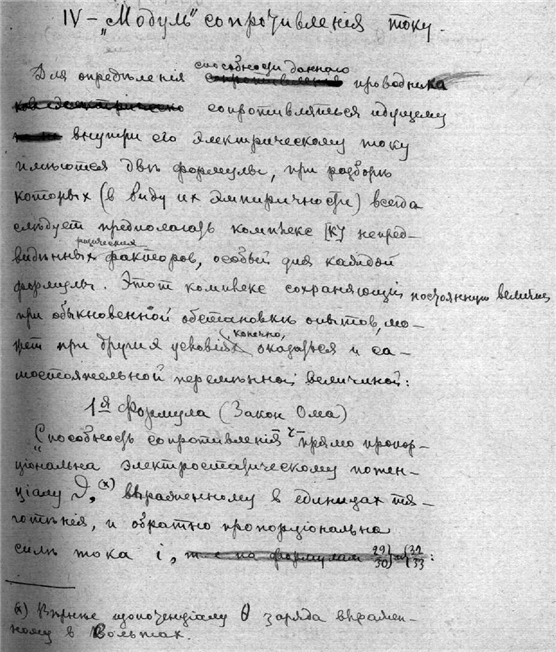 IV – „Модуль" сопротивленія току.
способности даннаго
Для опредѣленія сопротивленія проводника
сопротивляться идущему
внутри его электрическому току
имѣются двѣ формулы, при разборѣ
которыхъ (в виду их эмпиричности) всегда
слѣдует предполагать комплекс [К] непред-
физических
видѣнных факторов, особый для каждой
формулы. Этот комплекс сохраняющій постоянную величину
при обыкновенной обстановкѣ опытов, мо-
конечно,
жет при других условіях оказаться и са-
мостоятельной перемѣнной величиной:
1ая Формула (Закон Ома)
„Способность сопротивленія r прямо пропор-
ціональна электростатическому потен-
ціалу ϑ, (x) выраженному в единицах тя-
готѣнія, и обратно пропорціональна
силѣ тока i, т.е. на формулам 29/30) и (31/33 :
(x) Вѣрнѣе потенціалу θ заряда выражен-
ному в Вольтах.